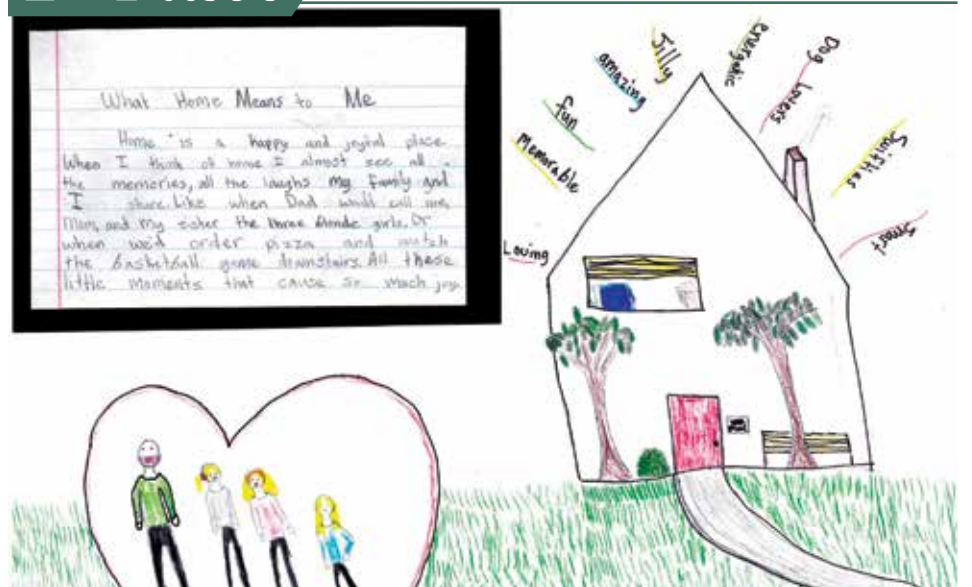 What Home Means to Me
Home is a happy and joyful place.
When I think of home I almost see all
the memories, all the laughs my family and
I share. Like when Dad would call me,
Mom, and my sister the three blonde girls. Or
when we'd order pizza and watch
the basketball game downstairs. All these
little moments that cause so much joy.
Loving
Memorable
fun
amazing
Silly
energetic
Dog Lovers
Swifties
Smart